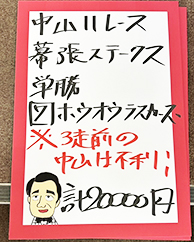 中山11レース
幕張ステークス
単勝
7 ホウオウラスカーズ
※3走前の
中山は不利!
計20000円